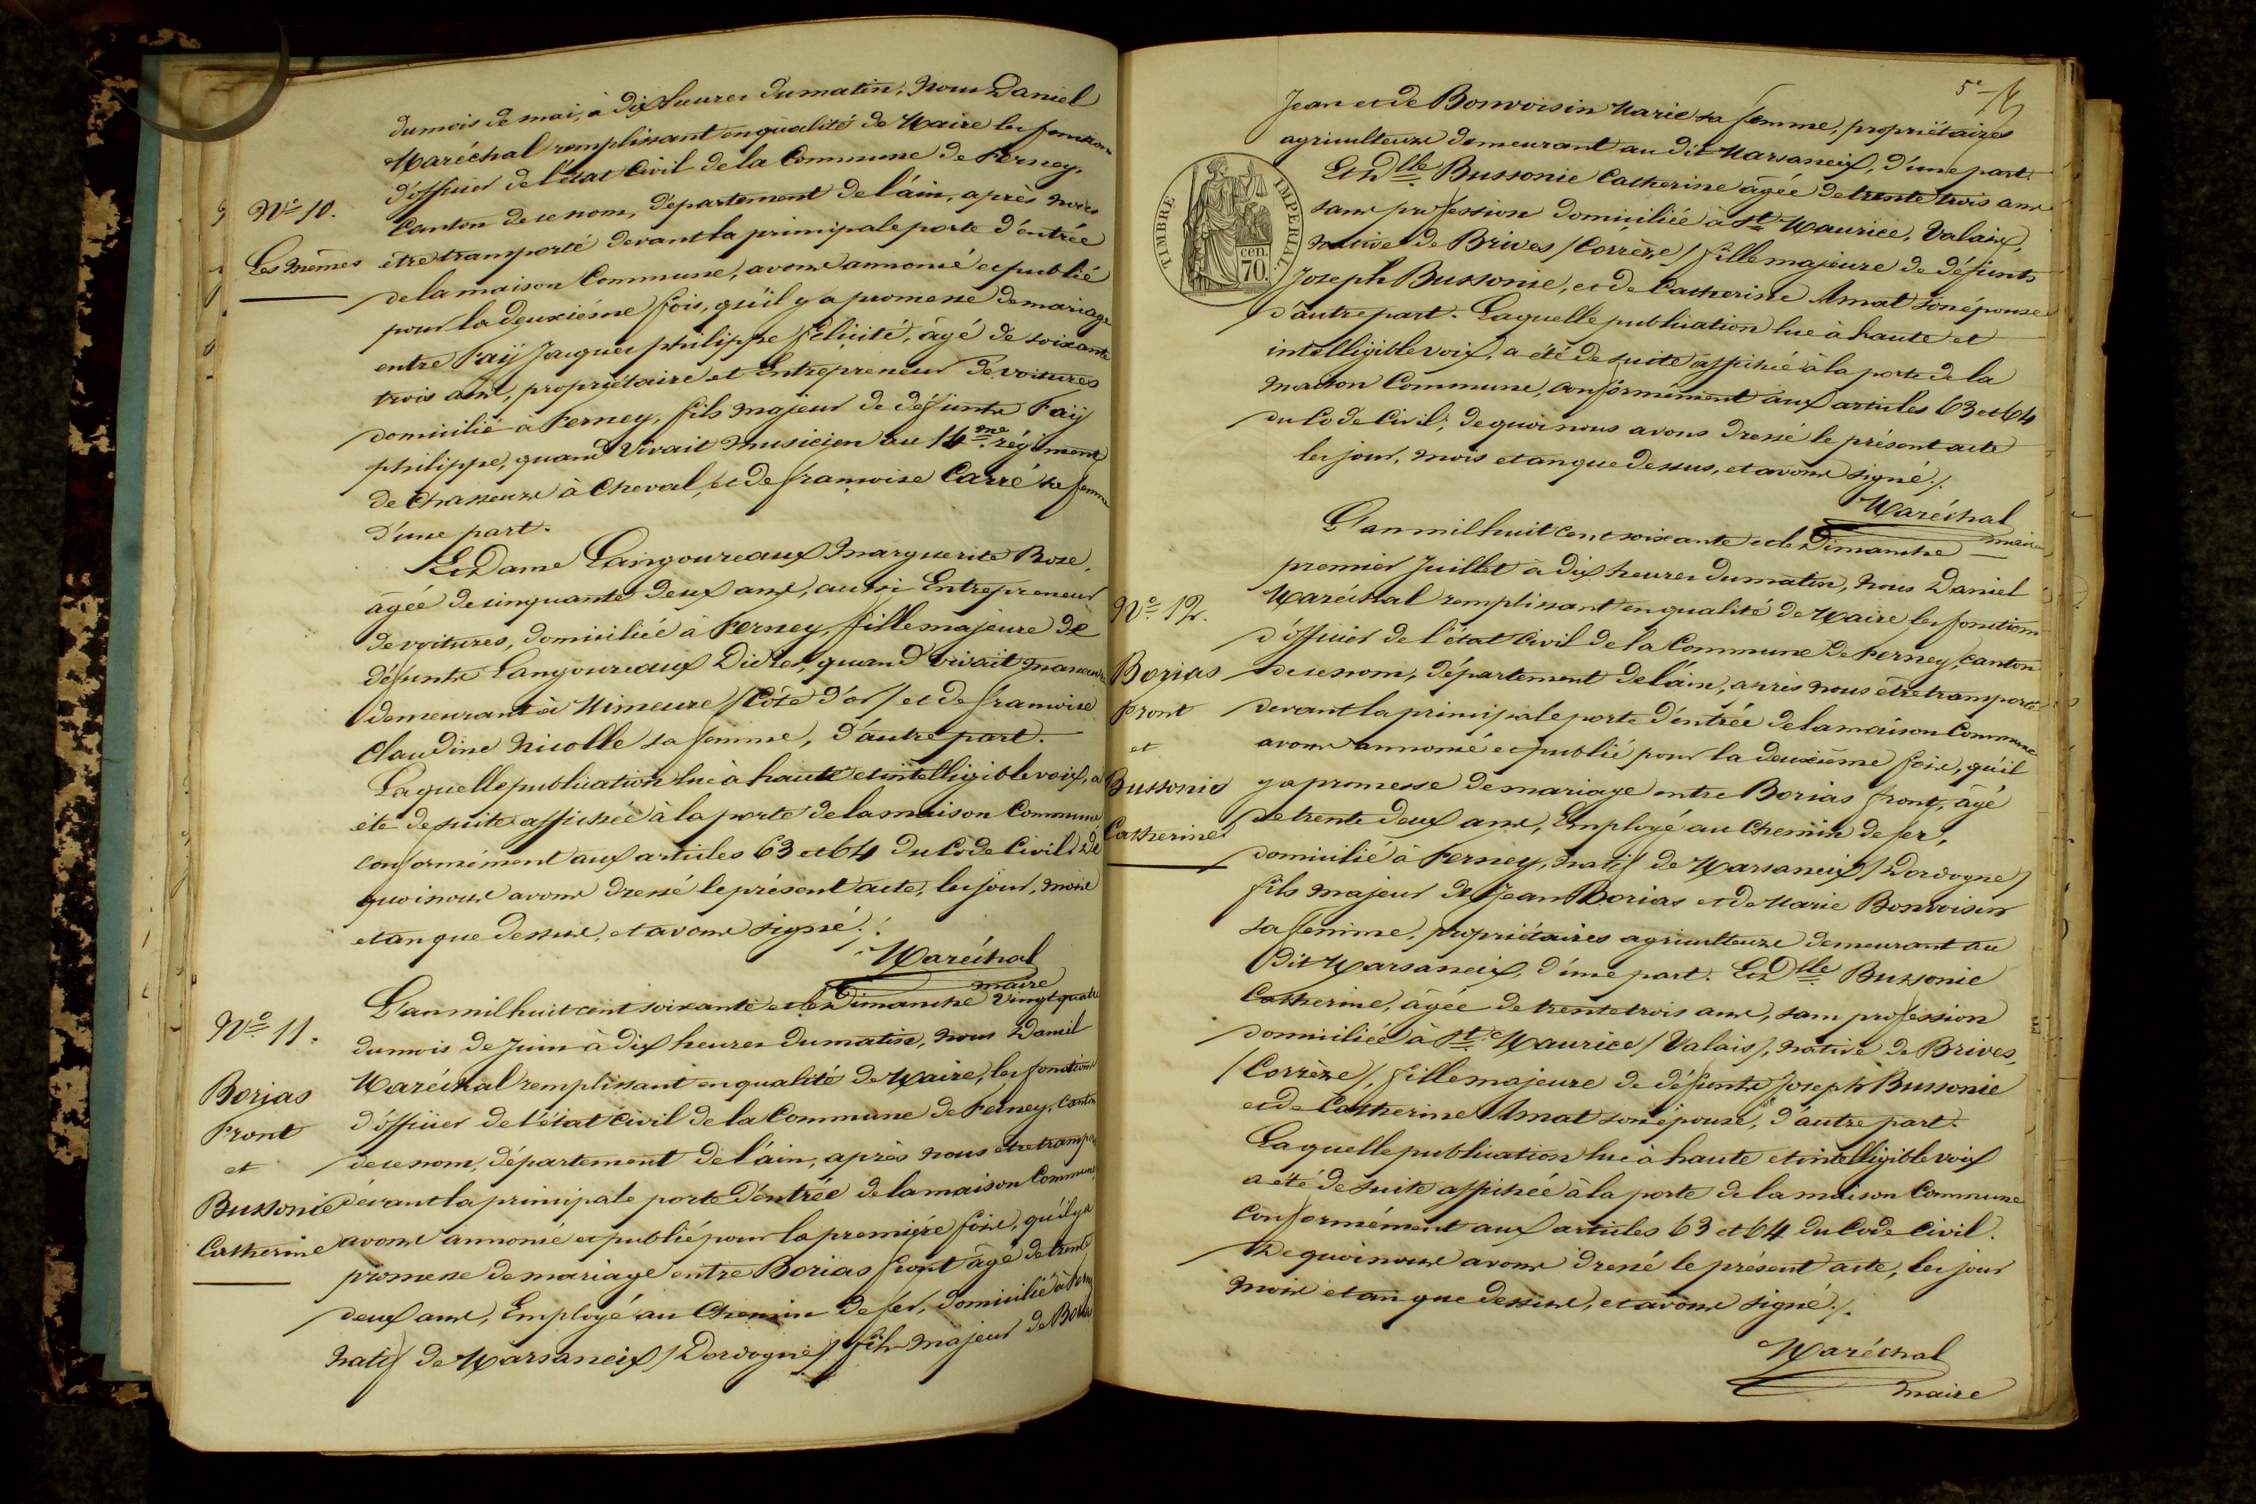 du mois de mai, à dix heures du matin, nous Daniel
Maréchal remplissant en qualité de Maire les fonctions
d'officier de l'état Civil de la Commune de Ferney,
N.° 10.
Canton de ce nom, département de l'ain, après nous
Les mêmes
être transporté devant la principale porte d'entrée
de la maison Commune, avons annoncé et publié
pour la deuxième fois, qu'il y a promesse de mariage
entre Faÿ Jacques philippe félicité, âgé de soixante
trois ans, propriétaire et Entrepreneur de voitures
domicilié à Ferney, fils majeur de défunts Faÿ
philippe, quand vivait musicien au 14.me régiment
de Chasseurs à Cheval, et de françoise Carré sa femme
d'une part.
Et Dame Langoureaux Marguerite Rose,
âgée de cinquante deux ans, aussi Entrepreneur
de voitures, domiciliée à Ferney, fille majeure de
défunts Langoureaux Didier, quand vivait
demeurant à Mimeure / Côte d'or / et de francoise
Claudine Nicolle sa femme, d'autre part.
Laquelle publication lue à haute et intelligible voix, a
été de suite affichée à la porte de la maison Commune
conformément aux articles 63 et 64 du Code Civil. De
quoi nous avons dressé le présent acte, les jour, mois
et an que dessus, et avons signé./.
Maréchal
maire
L'an mil huit cent soixante et le Dimanche vingt quatre
N.° 11.
du mois de Juin à dix heures du matin, nous Daniel
Maréchal remplissant en qualité de Maire, les fonctions
Borias
Front
et
Bussonie
Catherine
d'officier de l'état Civil de la Commune de Ferney, Canton
de ce nom, département de l'ain, après nous être transporté
devant la principale porte d'entrée de la maison Commune,
avons annoncé et publié pour la première fois, qu'il y a
promesse de mariage entre Borias front âgé de trente
deux ans, Employé au Chemin de fer, domicilié à Ferney
natif de Marsaneix / Dordogne / fils majeur de Borias
5e
Jean et de Bonvoisin Marie sa femme, propriétaires
agriculteurs demeurant au dit Marsaneix, d'une part.
Et Dlle Bussonie Catherine âgée de trente trois ans
sans profession domiciliée à St. Maurice, Valais,
native de Brives / Corrèze / fille majeure de défunts
Joseph Bussonie, et de Catherine Amat son épouse
d'autre part. Laquelle publication lue à haute et
intelligible voix, a été de suite affichée à la porte de la
maison Commune, conformément aux articles 63 et 64
du Code Civil; de quoi nous avons dressé le présent acte
les jour, mois et an que dessus, et avons signé./.
TIMBRE IMPERIAL
cen.
70.
Maréchal
maire
L'an mil huit cent soixante et le Dimanche
premier Juillet à dix heures du matin, nous Daniel
N.° 12.
Maréchal remplissant en qualité de Maire les fonctions
d'officier de l'état Civil de la Commune de Ferney, canton
Borias
front
et
Bussonie
Catherine
de ce nom, département de l'ain, après nous être transporté
devant la principale porte d'entrée de la maison Commune
avons annoncé et publié pour la deuxième fois, qu'il
y a promesse de mariage entre Borias front, âgé
de trente deux ans, Employé au Chemin de fer,
domicilié à Ferney, natif de Marsaneix / Dordogne /
fils majeur de Jean Borias et de Marie Bonvoisin
sa femme, propriétaires agriculteurs demeurant au
dit Marsaneix, d'une part. Et Dlle Bussonie
Catherine, âgée de trente trois ans, sans profession
domiciliée à St. Maurice / Valais /, native de Brives,
/ Corrèze /, fille majeure de défunts Joseph Bussonie
et de Catherine Amat son épouse, d'autre part.
Laquelle publication lue à haute et intelligible voix
a été de suite affichée à la porte de la maison Commune
conformément aux articles 63 et 64 du Code Civil.
De quoi nous avons dressé le présent acte, les jour
mois et an que dessus, et avons signé./.
Maréchal
maire